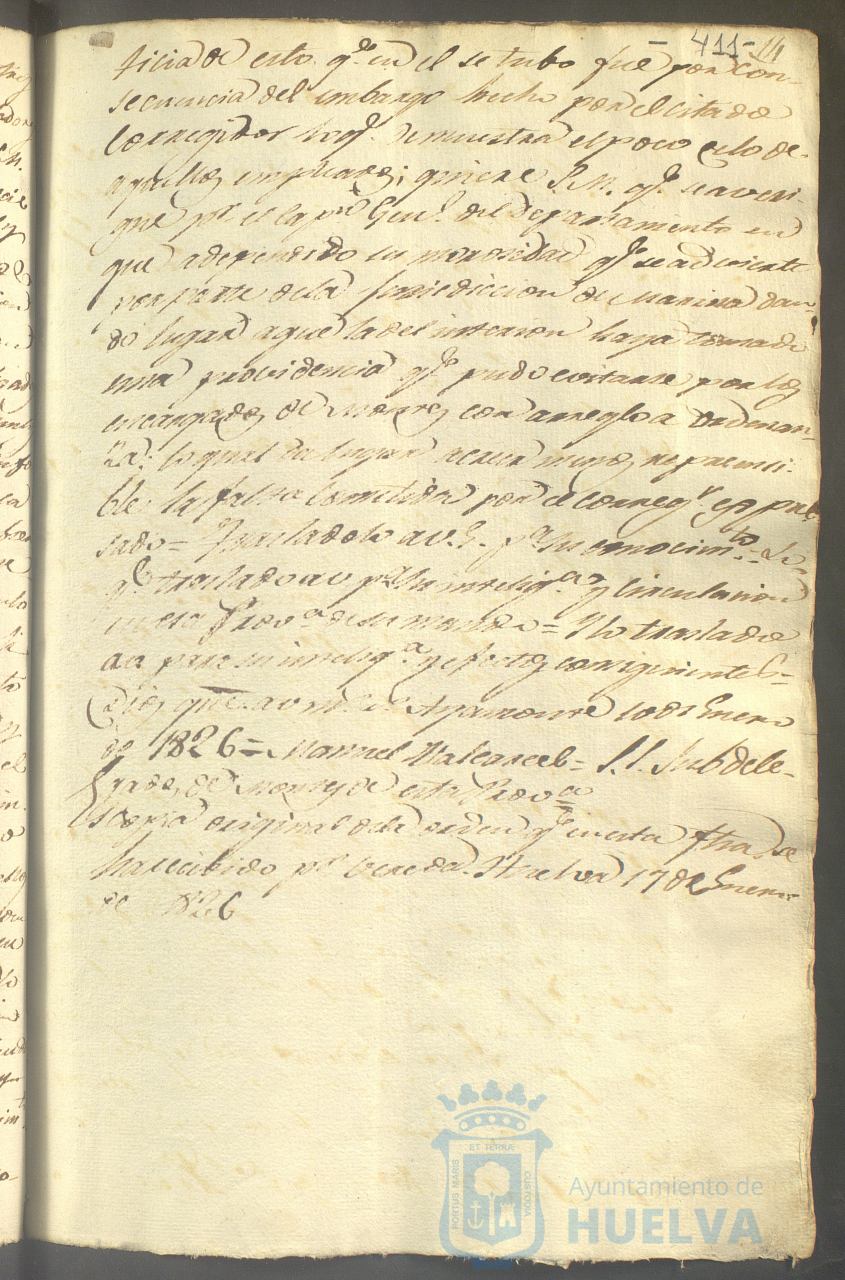 -411-
ticia de esto qe. en el se tubo fue por con-
secuencia del embargo hecho por el citado
Corregidor lo qe. demuestra el poco celo de
aquellos empleados; quiere S.M. qe. se averi-
gue pr. el Capn. Genl. del Departamento en
que a dependido la morosidad qe. se advierte
por parte de la Jurisdiccion de Marina dan-
do lugar a que la del interior haya tomado
una providencia qe. pudo evitarse por los
encargados de Montes con arreglo a Ordenan-
za; lo qual da lugar a creer menos reprensi-
ble la falta cometida por el corregr. expre-
sado = Trasladolo a V.S. pa. su conocimto. = Lo
qe. traslado a V pa. su inteliga. y circulacion
en esa Prova. de su mando = Y lo traslado
a V para su inteliga. y efectos consiguientes =
Dios gue. a V ms. as. Ayamonte 10 de Enero
de 1826 = Manuel Valcarcel = S.S. Subdele-
gado de Montes de esta Prova.
Es copia original de la orden qe. en esta fha. se
ha recibido pr. vereda. Huelva 17 de Enero
de 1826
ET TERRÆ
PORTUS MARIS
CUSTODIA
Ayuntamiento de
HUELVA